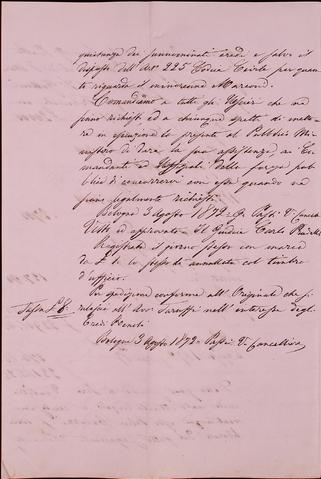 quietanza dei sunnominati eredi e salvo il
disposto dell'Art 225 Codice Civile per quan
to riguarda il minorenne
Comandiamo a tutti gli Uscieri che ne
siano richiesti ed a chiunque spetti di mette
re in esecuzione la presente al Pubblico Mi
nistero di darvi la sua assistenza, ai Co
mandanti ed Uffiziali della forza pub
blica di concorrervi con essa quando ne
siano legalmente richiesti
Bologna 3 Agosto 1872
Visto ed approvato Il Giudice Carlo
Registrata il giorno stesso con marca
da L 1. annullata col timbro
d'ufficio.
Per spedizione conforme all'Originale che si
rilascia all' Avv. nell'interesse degli
Eredi
Bologna 3 Agosto 1872 Vе Cancelliere